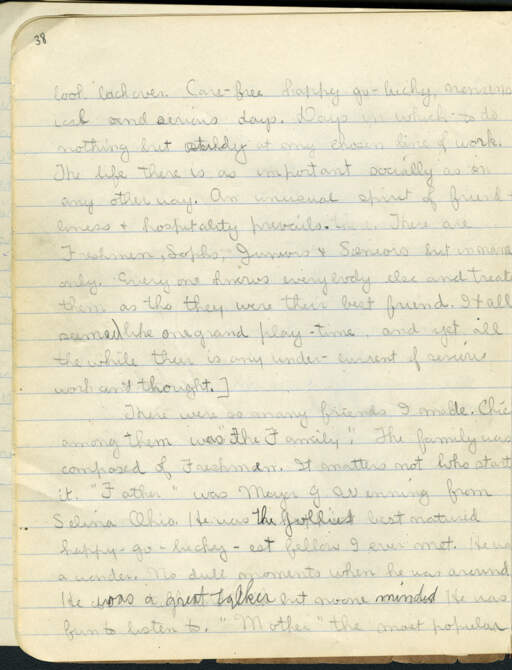 38
look back over. Care-free happy go-lucky, nonsens
ical and serious days. Days in which to do
nothing but study at my chosen line of work.
The life there is as important socially as in
any other way. An unusual spirit of friend-
liness & hospitality prevails. There are
Freshmen, Sophs, Juniors & Seniors but in name
only. Every one knows everybody else and treat
them as tho they were their best friend. It all
seemed like one grand play-time and yet all
the while there is any under-current of serious
work and thought.]
There were so many friends I made. Chie
among them was "The Family". The family was
composed of Freshmen. It matters not who start
it. "Father" was Mayer G Wenning from
Selina Ohio. He was the jolliest best natured
happy-go-luckey-est fellow I ever met. He wa
a wonder. No dull moments when he was around
He was a great talker but no one minded He was
fun to listen to. "Mother" the most popular